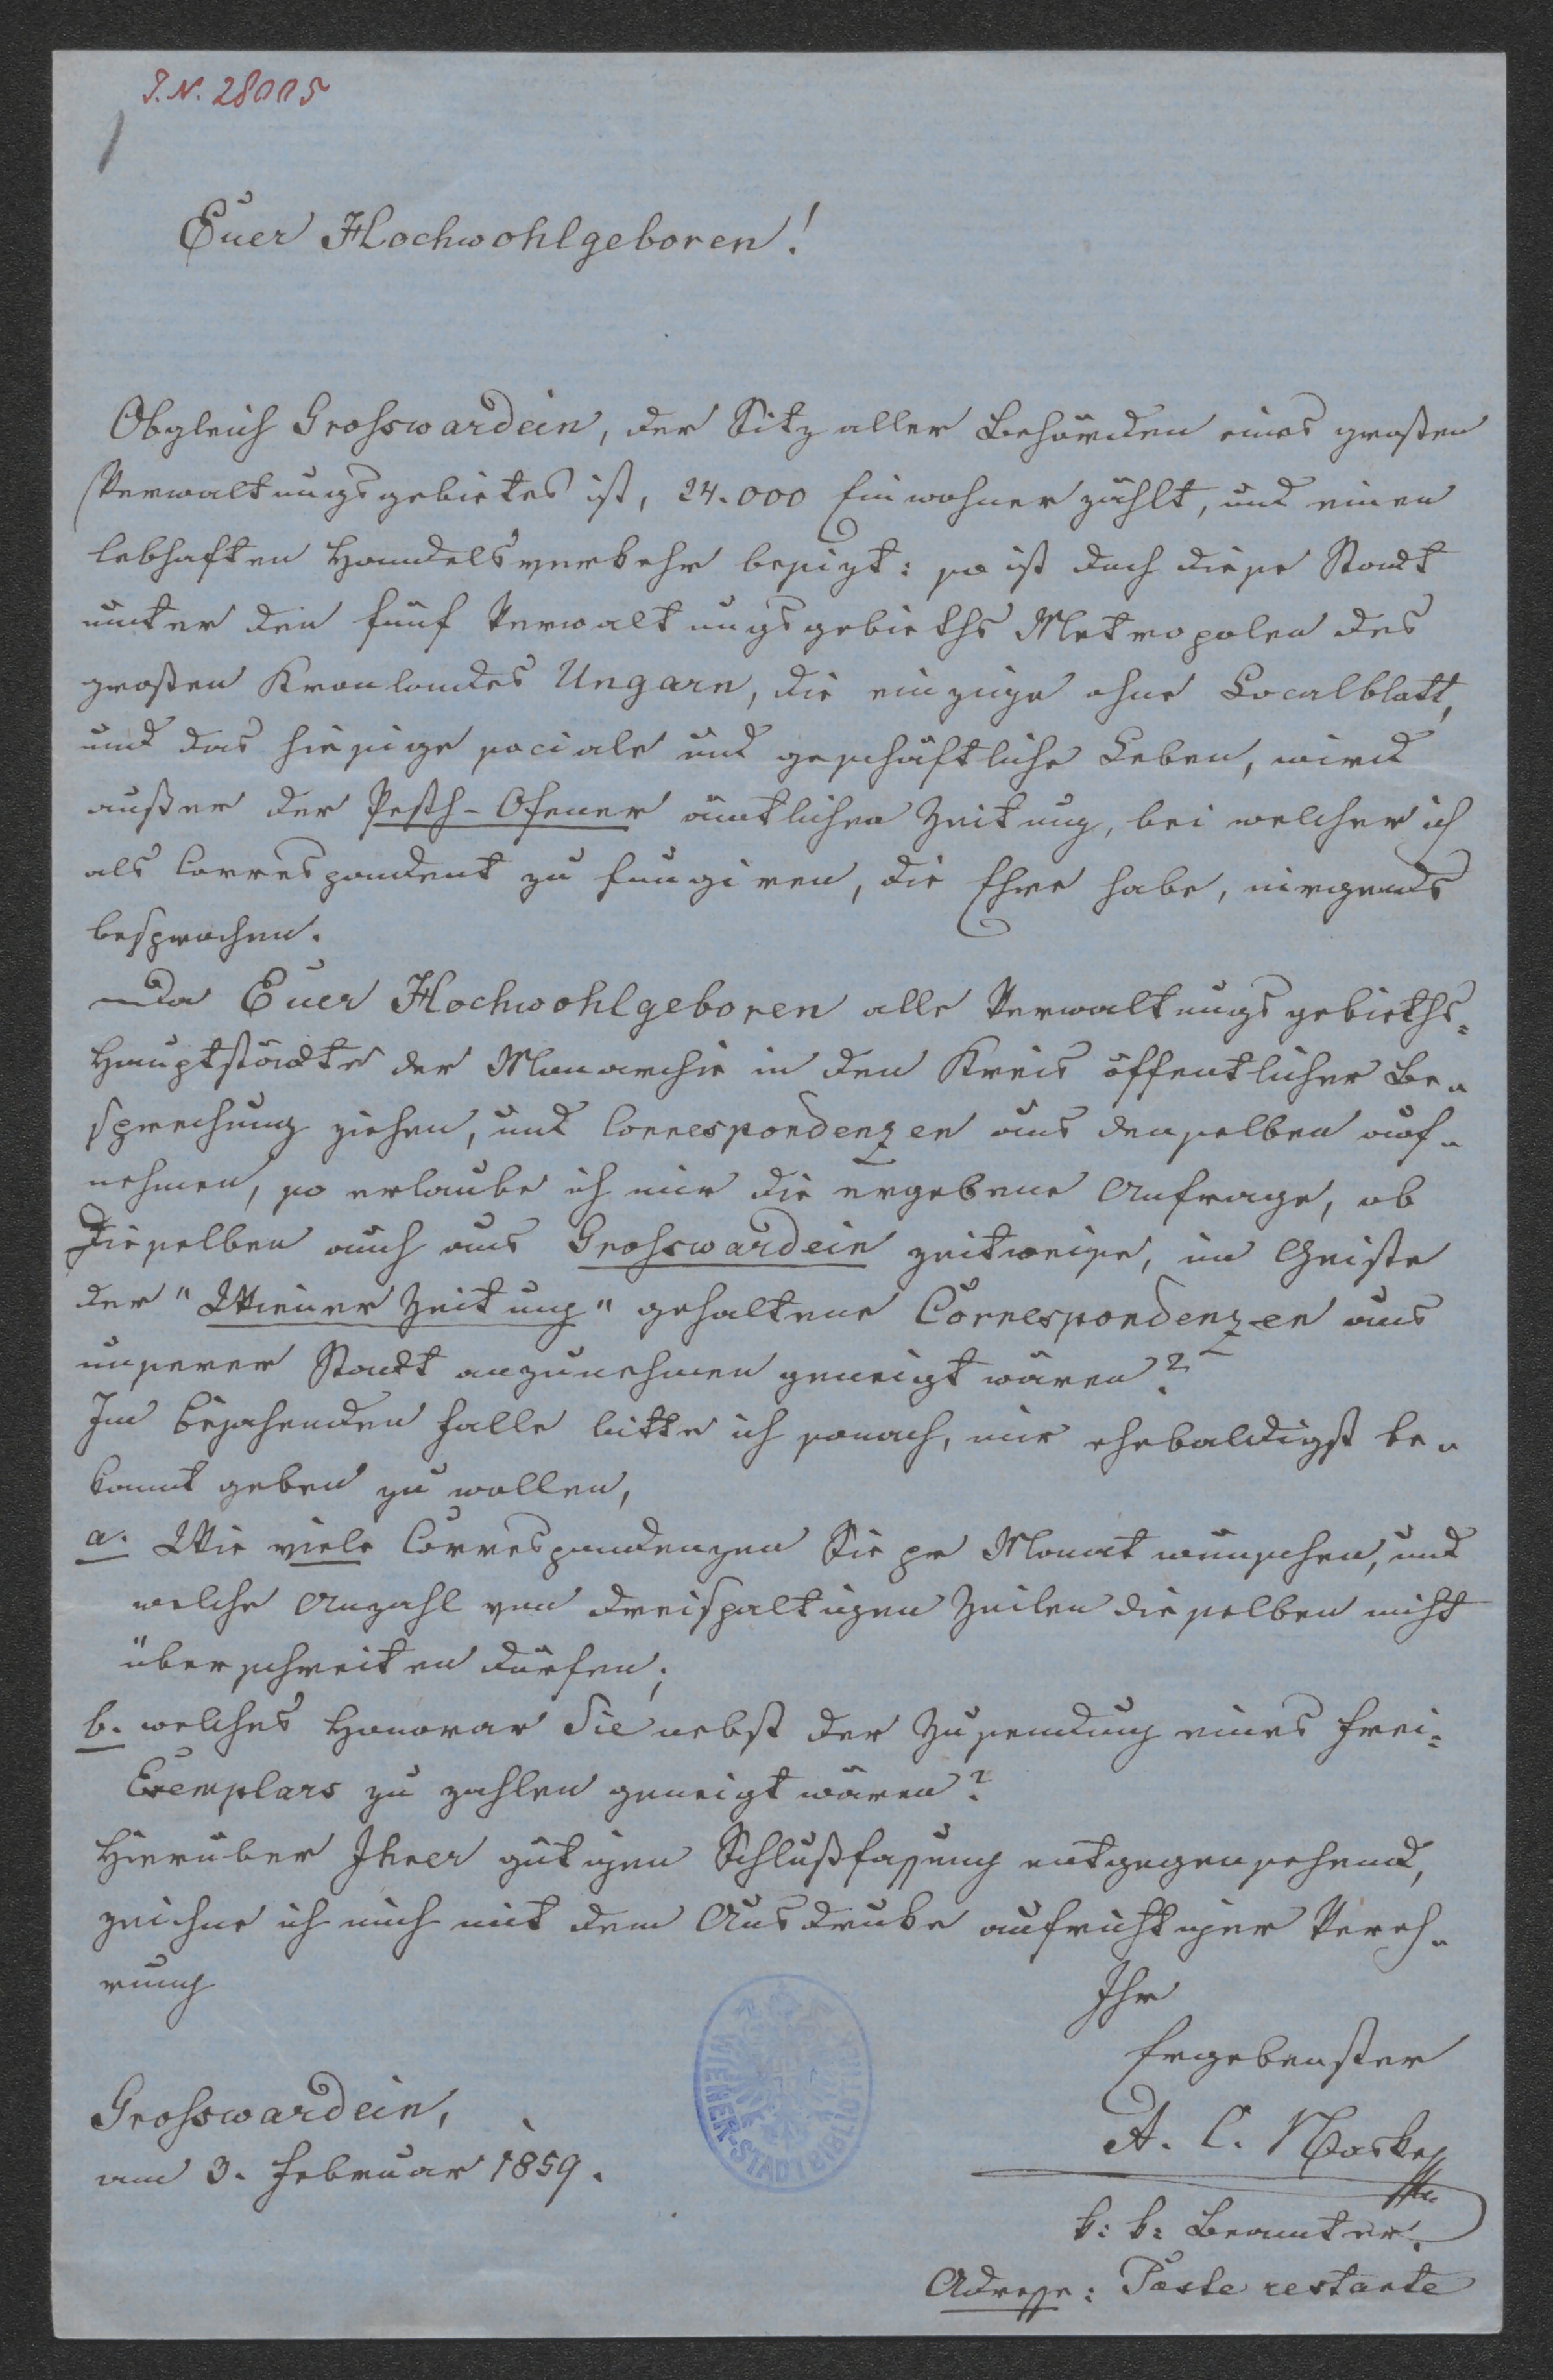 I.N. 28005
Euer Hochwohlgeboren!
Obgleich Grosswardein, der Sitz aller Behörden eines großen
Verwaltungsgebietes ist, 24.000 Einwohner zählt, und einen
lebhaften Handelsverkehr besizt: so ist doch diese Stadt
unter den fünf Verwaltungsgebieths Metropolen des
großen Kronlandes Ungarn, die einzige ohne Localblatt,
und das hiesige sociale und geschäftliche Leben, wird
außer der Pesth-Ofener ämtlichen Zeitung, bei welcher ich
als Correspondent zu fungiren, die Ehre habe, nirgends
besprochen.
Da Euer Hochwohlgeboren alle Verwaltungsgebieths=
Hauptstädte der Monarchie in den Kreis öffentlicher Be-
sprechung ziehen, und Correspondenzen aus denselben auf-
nehmen, so erlaube ich mir die ergebene Anfrage, ob
Dieselben auch aus Grosswardein zeitweise, im Geiste
der "Wiener Zeitung" gehaltene Correspondenzen aus
unserer Stadt anzunehmen geneigt wären?
Im bejahenden Falle bitte ich sonach, mir ehebaldigst be-
kannt geben zu wollen,
a. Wie viele Correspondenzen Sie pr Monat wünschen, und
welche Anzahl von dreispaltigen Zeilen dieselben nicht
überschreiten dürfen;
b. welches Honorar Sie nebst der Zusendung eines Frei=
Exemplars zu zahlen geneigt wären?
Hierüber Ihrer gütigen Schlußfassung entgegensehend,
zeichne ich mich mit dem Ausdrucke aufrichtiger Vereh-
rung
Ihr
Ergebenster
Grosswardein,
am 3. Februar 1859.
A. C.
k: k: Beamter.
Adresse: Poste restante
WIENER-STADTBIBLIOTHEK